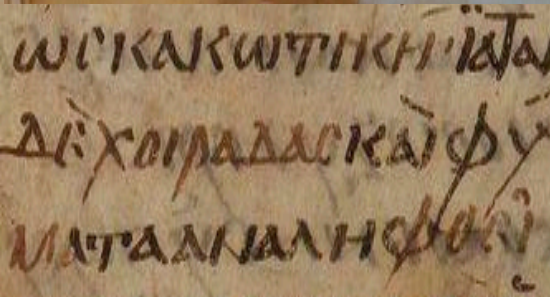 ωσκακωτικη·ϊᾶται
δὲχοιραδασκαὶφύ
ματααναληφθεῖ